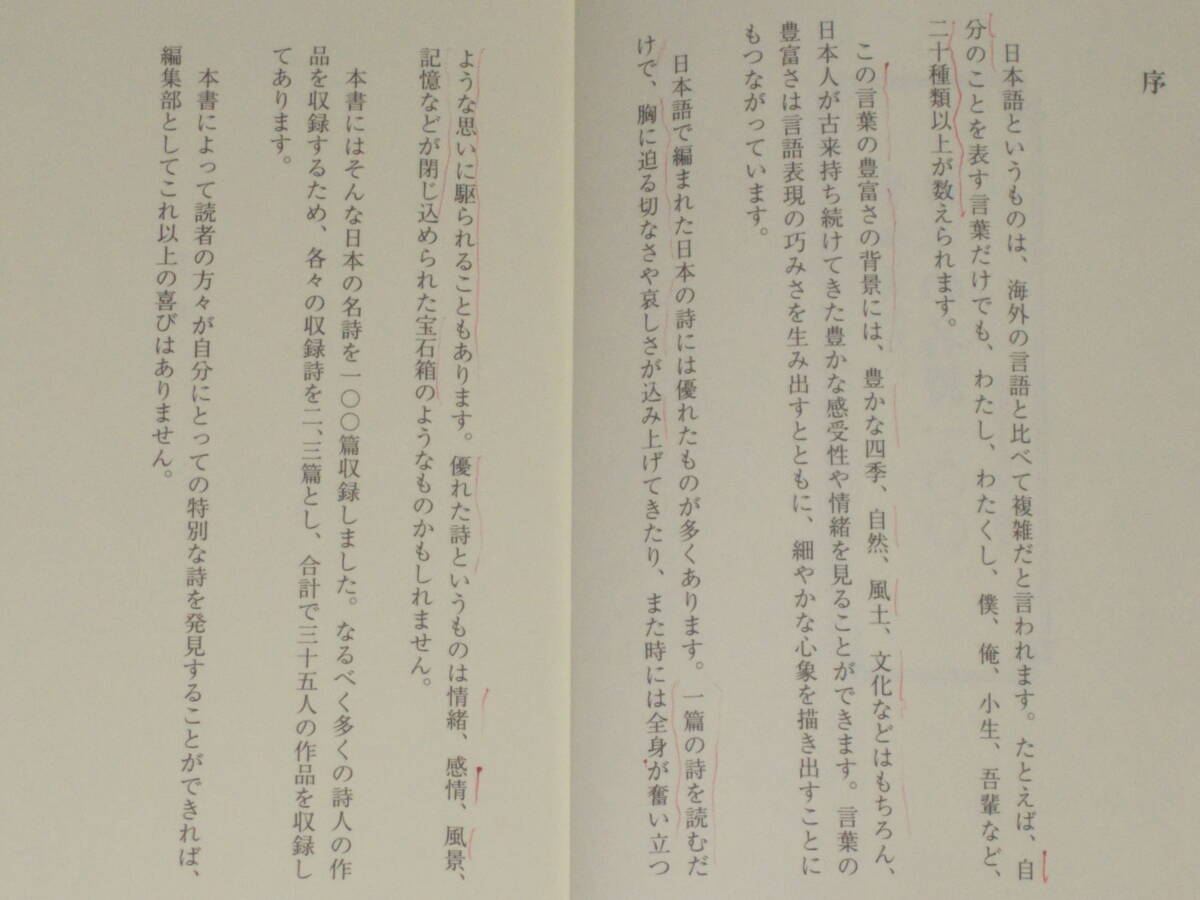 序
日本語というものは、海外の言語と比べて複雑だと言われます。たとえば、自
分のことを表す言葉だけでも、わたし、わたくし、僕、俺、小生、吾輩など、
二十種類以上が数えられます。
この言葉の豊富さの背景には、豊かな四季、自然、風土、文化などはもちろん、
日本人が古来持ち続けてきた豊かな感受性や情緒を見ることができます。言葉の
豊富さは言語表現の巧みさを生み出すとともに、細やかな心象を描き出すことに
もつながっています。
日本語で編まれた日本の詩には優れたものが多くあります。一篇の詩を読むだ
けで、胸に迫る切なさや哀しさが込み上げてきたり、また時には全身が奮い立つ
ような思いに駆られることもあります。優れた詩というものは情緒、感情、風景、
記憶などが閉じ込められた宝石箱のようなものかもしれません。
本書にはそんな日本の名詩を一〇〇篇収録しました。なるべく多くの詩人の作
品を収録するため、各々の収録詩を二、三篇とし、合計で三十五人の作品を収録し
てあります。
本書によって読者の方々が自分にとっての特別な詩を発見することができれば、
編集部としてこれ以上の喜びはありません。